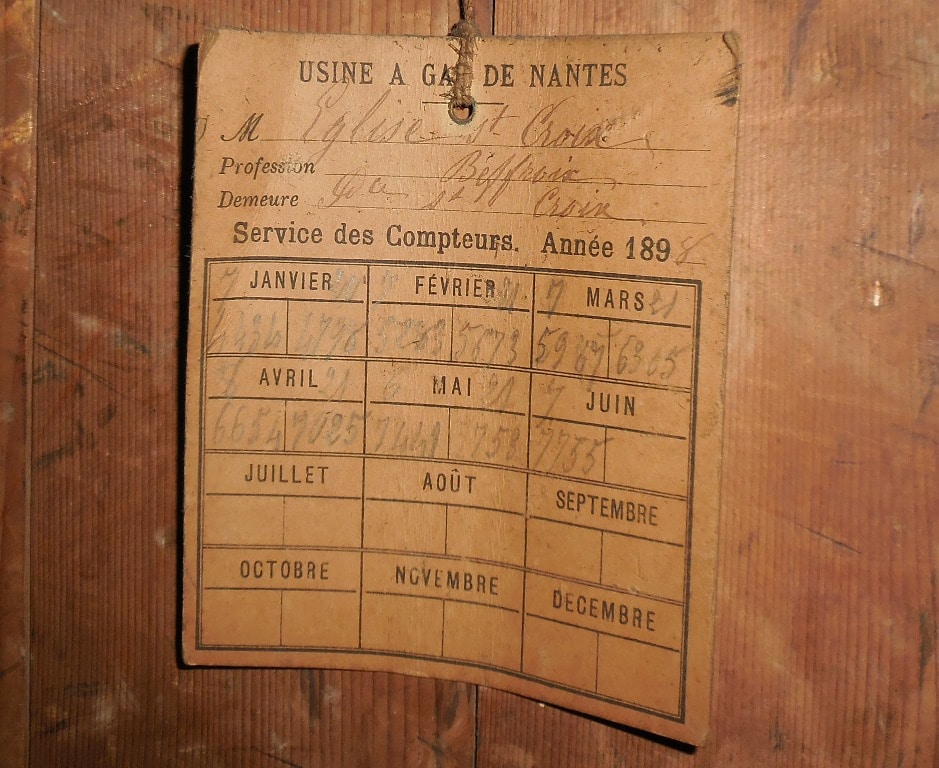 USINE A GAZ DE NANTES
M Eglise St Croix
Profession Béffroix
Demeure Pce St Croix
Service des Compteurs. Année 1898
7 JANVIER 21 FÉVRIER 21 7 MARS 21
5673 5967 6305
AVRIL 21 MAI 21 7 JUIN
6654 7025 7441 7755
JUILLET AOÛT SEPTEMBRE
OCTOBRE NOVEMBRE DECEMBRE